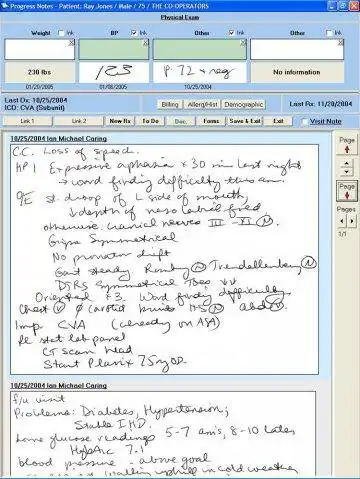 Progress Notes - Patient: Ray Jones / Male / 75 / THE CO-OPERATORS
Physical Exam
Weight Ink BP Ink Other Ink Other Ink
230 lbs P 72 reg No information
01/20/2005 01/08/2005 10/25/2004
Last Dx: 10/25/2004
ICD: CVA (Subunit)
Billing Allerg/Hist Demographic
Last Rx: 11/20/2004
Link 1 Link 2 New Rx To Do Doc. Forms Save & Exit Exit Visit Note
10/25/2004 Ian Michael Caring
C.C. Loss of speed.
HPI Expressive aphasia x 30 min last night
→ word finding difficulty this am.
O/E st. droop of L side of mouth,
↓ depth of nasolabial fold
otherwise cranial nerves III - XII N
Grips Symmetrical
No pronator drift
Gait steady Romberg N Trendellenberg N
DTRS symmetrical Toes ↓↓
Oriented x3. Word finding difficulty
Chest N 0 carotid bruits HS N abd N
Imp CVA (already on ASA)
Rx stat lab panel
CT scan head
Start Plavix 75mg OD.
Page
Page
Pages
1/1
10/25/2004 Ian Michael Caring
f/u visit
Problems: Diabetes, Hypertension;
Stable IHD.
home glucose readings 5-7 am's, 8-10 later
HgbA1c 7.1
blood pressure - above goal
walking uphill in cold weather